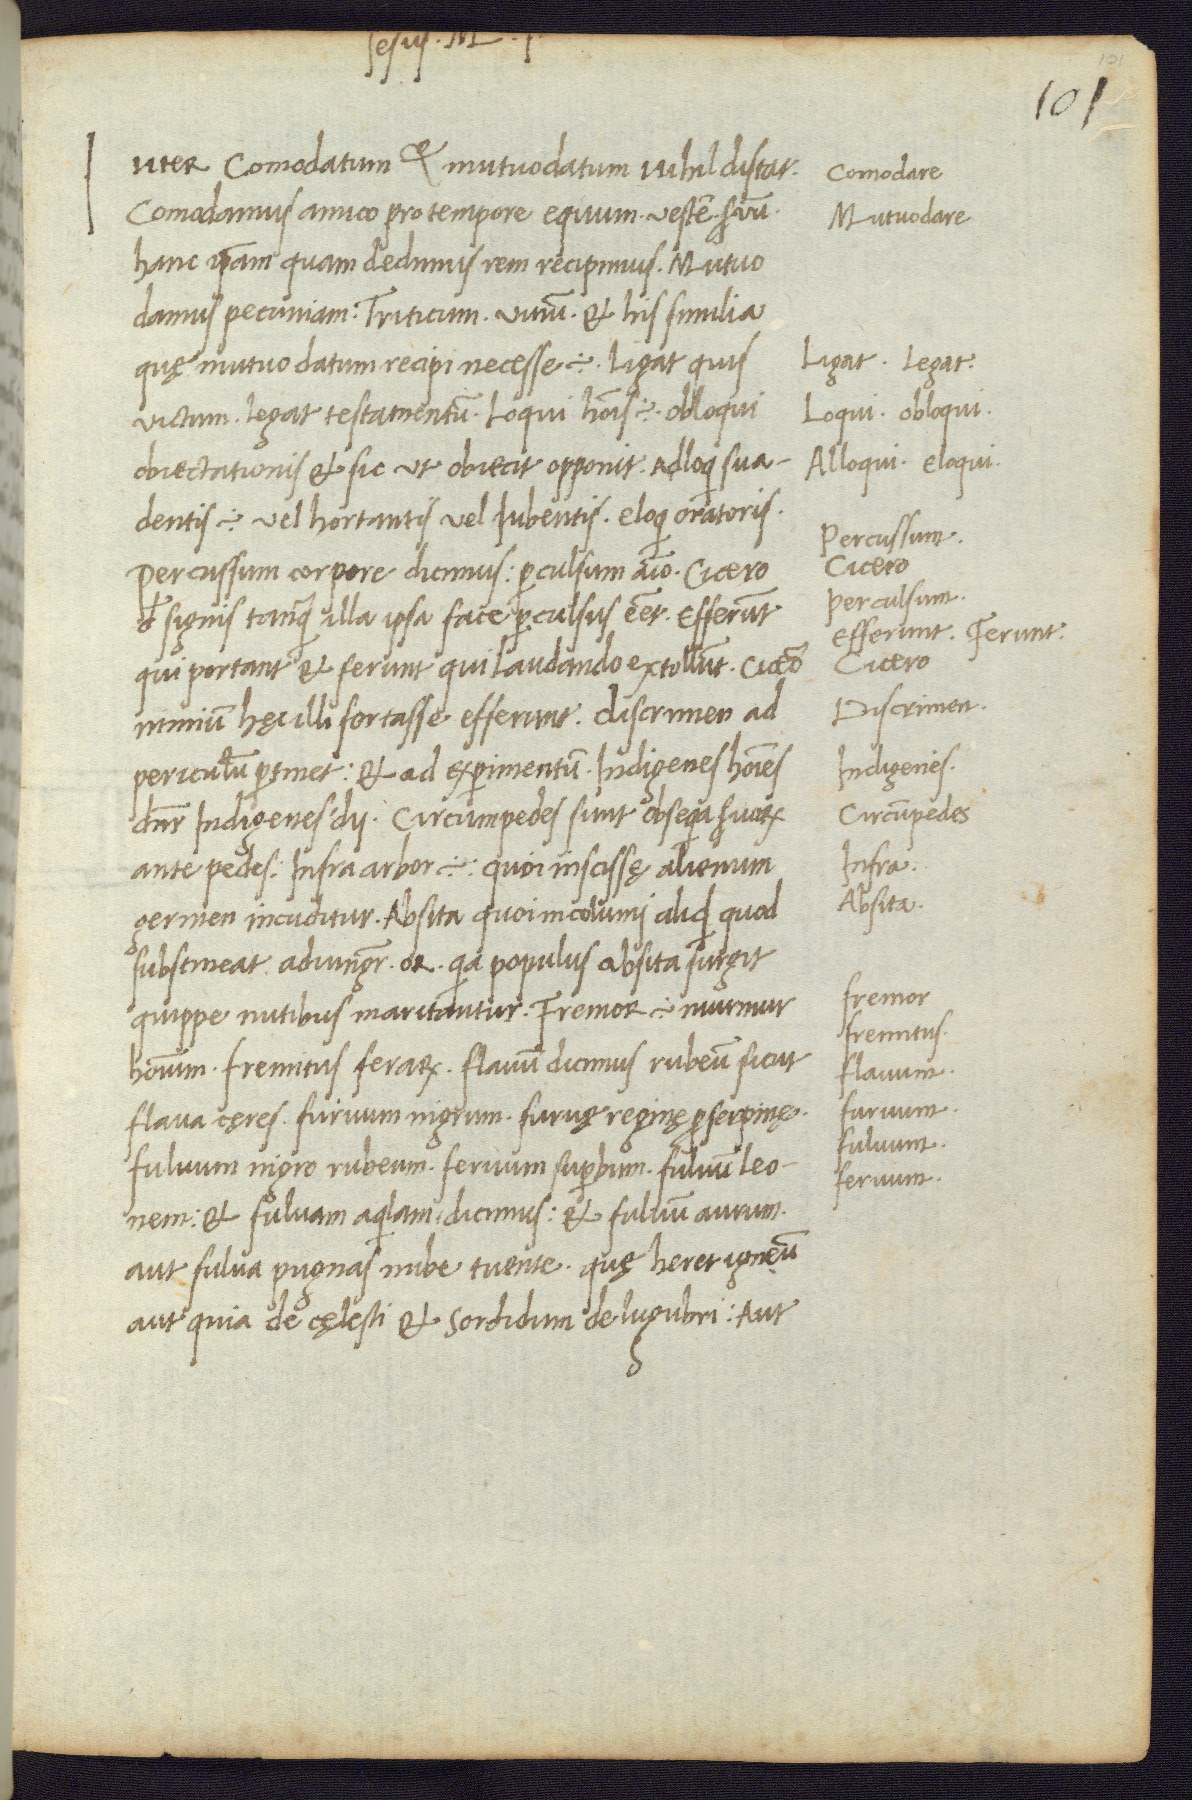 Jesus. M.
101
101
Inter Comodatum & mutuodatum nihil distat.
Comodamus amico pro tempore equum. vestē. ẜvū.
hanc ip̄am quam dedimus rem recipimus. Mutuo
damus pecuniam: Triticum. vinū. & his similia
quę mutuo datum recipi necesse ÷. Ligat quis
victum. legat testamentū. Loqui hōis ÷. obloqui
obiectationis & sic ut obiecit opponit. Adloq̄ sua-
dentis ÷ vel hortantis vel Iubentis. eloq̄ oratoris.
Percussum corpore dicimus: ꝑculsum aīo. Cicero
signis tanq̄ illa ipsa face ꝑculsus eēt. Efferūt
qui portant & ferunt qui laudando extollūt. Cicero
nimiū hęc illi fortasse efferunt. discrimen ad
periculū ꝑtinet: & ad exꝑimentū. Indigenes hōies
dn̄r Indigenes dij. Circumpedes sunt obseqa ẜvoꝝ
ante pedes: Infra arbor ÷: quoi inscissę alienum
germen incuditur. Absita quoi incolumi aliq̄d quod
substineat adiungr̄. OR. qa populus absita surgit
quippe nutibus maritantur. Fremor ÷ murmur
hoīum. fremitus feraꝝ. flauū dicimus rubeū sicut
flava cęres. furuum nigrum. furuę reginę ꝓserpinę.
fuluum nigro rubeum. feruum suꝑbum. fuluū leo-
nem: & fuluam aqlam dicimus: & fuluū aurum.
aut fulua pugnas nube tuente. quę heret igneū
aut quia de cęlesti & sordidum de lugubri: Aut
Comodare
Mutuodare
Ligat. Legat.
Loqui. obloqui.
Alloqui. eloqui.
Percussum.
Cicero
perculsum.
efferunt. Ferunt.
Cicero
Discrimen.
Indigenes.
Circūpedes
Infra.
Absita.
fremor
fremitus.
flauum.
furuum.
fuluum.
feruum.